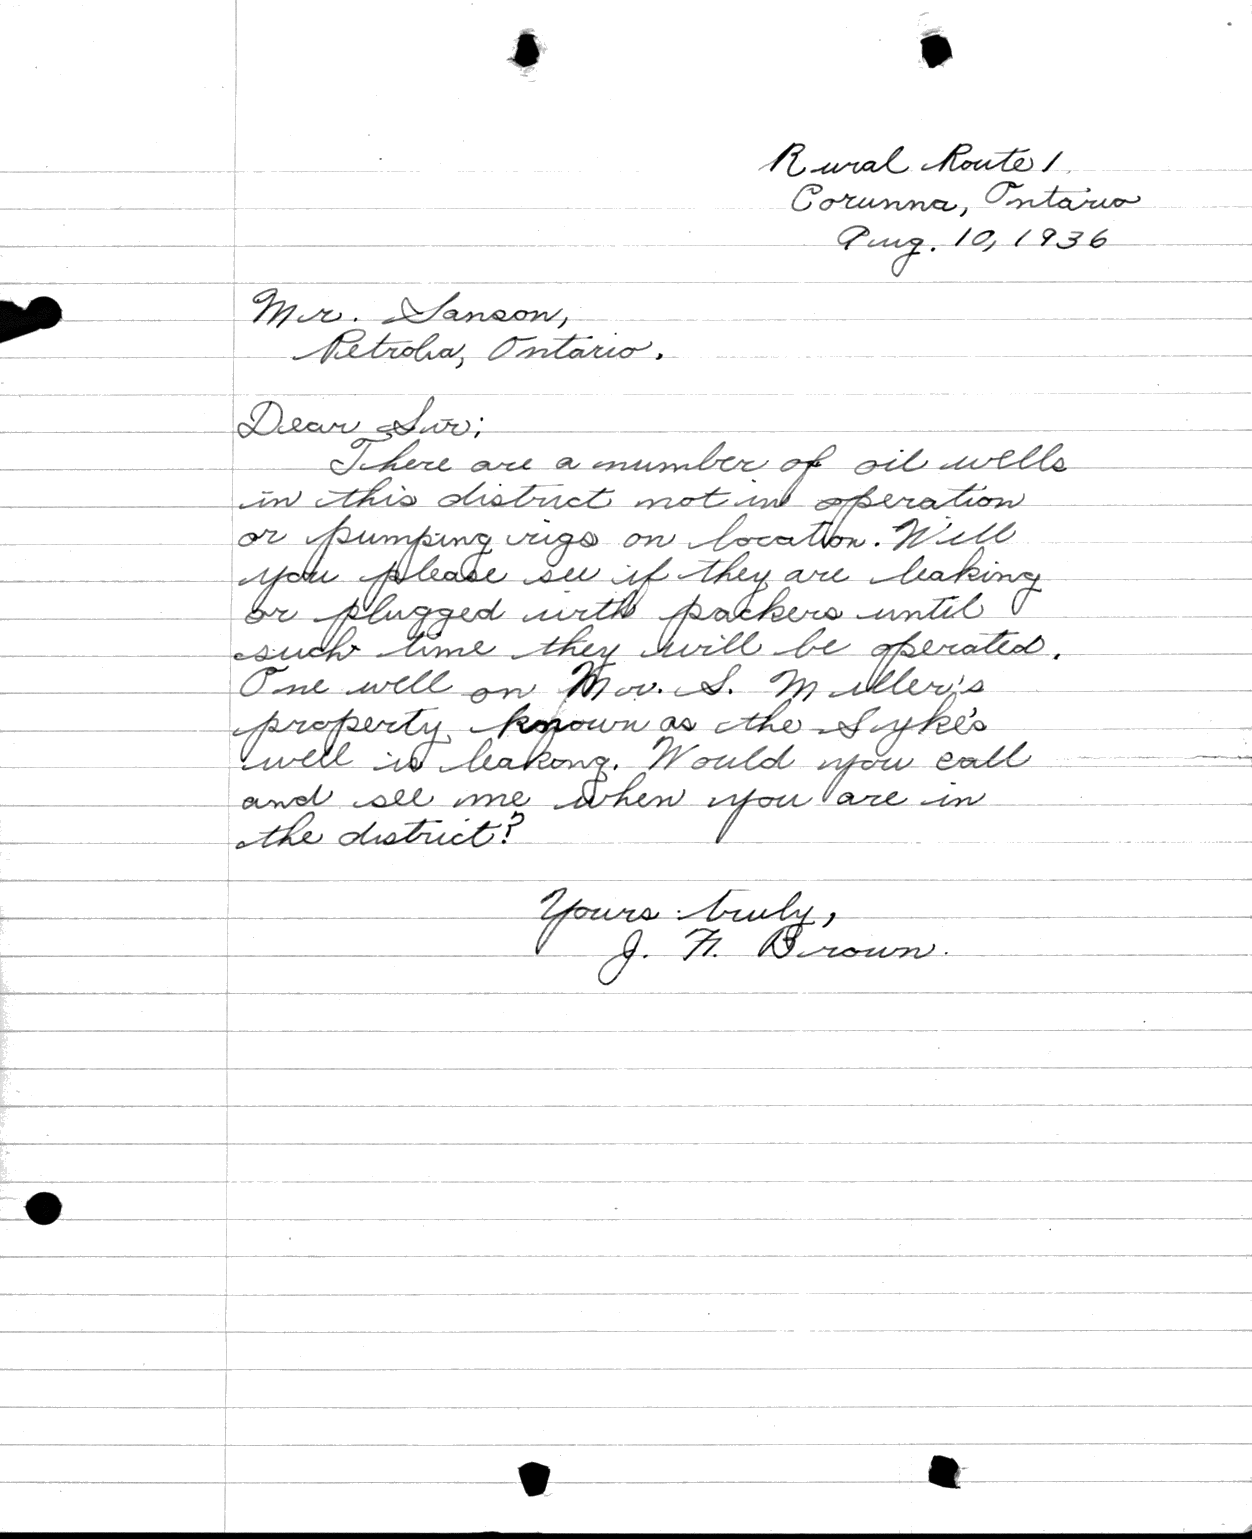 Rural Route 1
Corunna, Ontario
Aug. 10, 1936
Mr. Sanson,
Petrolia, Ontario.
Dear Sir;
There are a number of oil wells
in this district not in operation
or pumping rigs on location. Will
you please see if they are leaking
or plugged with packers until
such time they will be operated.
One well on Mr. S. Miller's
property known as the Syke's
well is leaking. Would you call
and see me when you are in
the district?
Yours truly,
J. N. Brown.